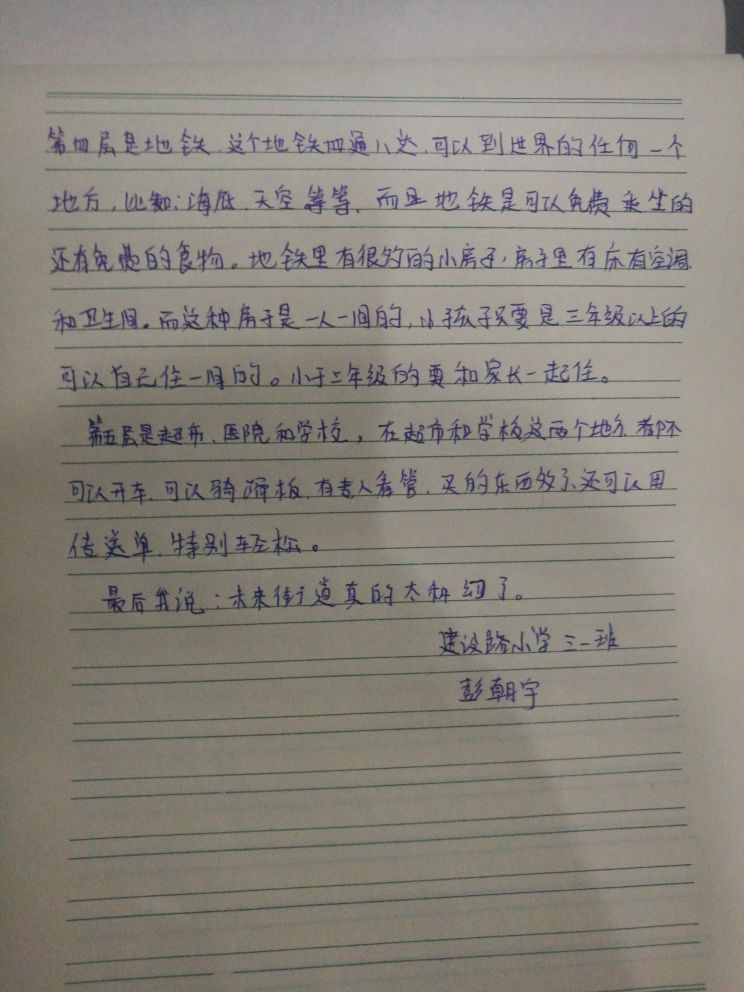 第四层是地铁,这个地铁四通八达,可以到世界的任何一个
地方,比如:海底、天空等等,而且地铁是可以免费乘坐的
还有免费的食物。地铁里有很多的小房子,房子里有床有空调
和卫生间。而这种房子是一人一间的,小孩子只要是三年级以上的
可以自己住一间的。小于三年级的要和家长一起住。
第五层是超市、医院和学校,在超市和学校这两个地方都不
可以开车,可以骑滑板,有专人看管,买的东西多了,还可以用
传送单,特别轻松。
最后我说:未来街道真的太科幻了。
建设路小学三一班
彭朝宇